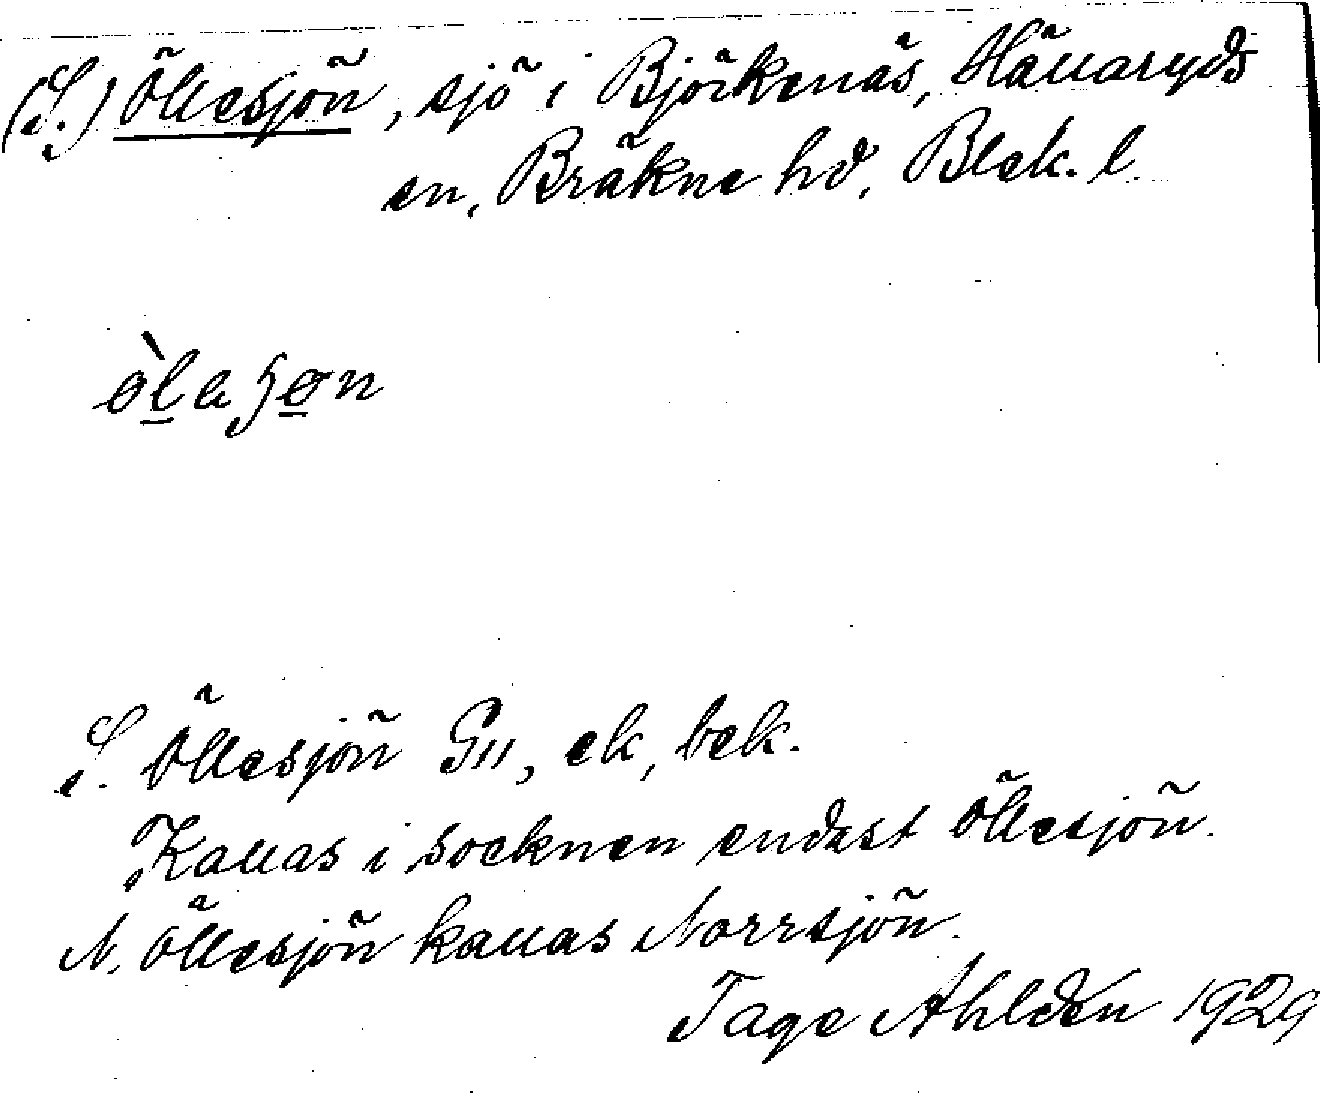 (S.) Öllesjön, sjö i Björkenäs, Hällaryds
sn, Bräkne hd, Blek. l.
ö̀lasjön
S. Öllesjön GII, ek, bek.
Kallas i socknen endast Öllesjön.
N. Öllesjön kallas Norrsjön.
Tage Ahldén 1929